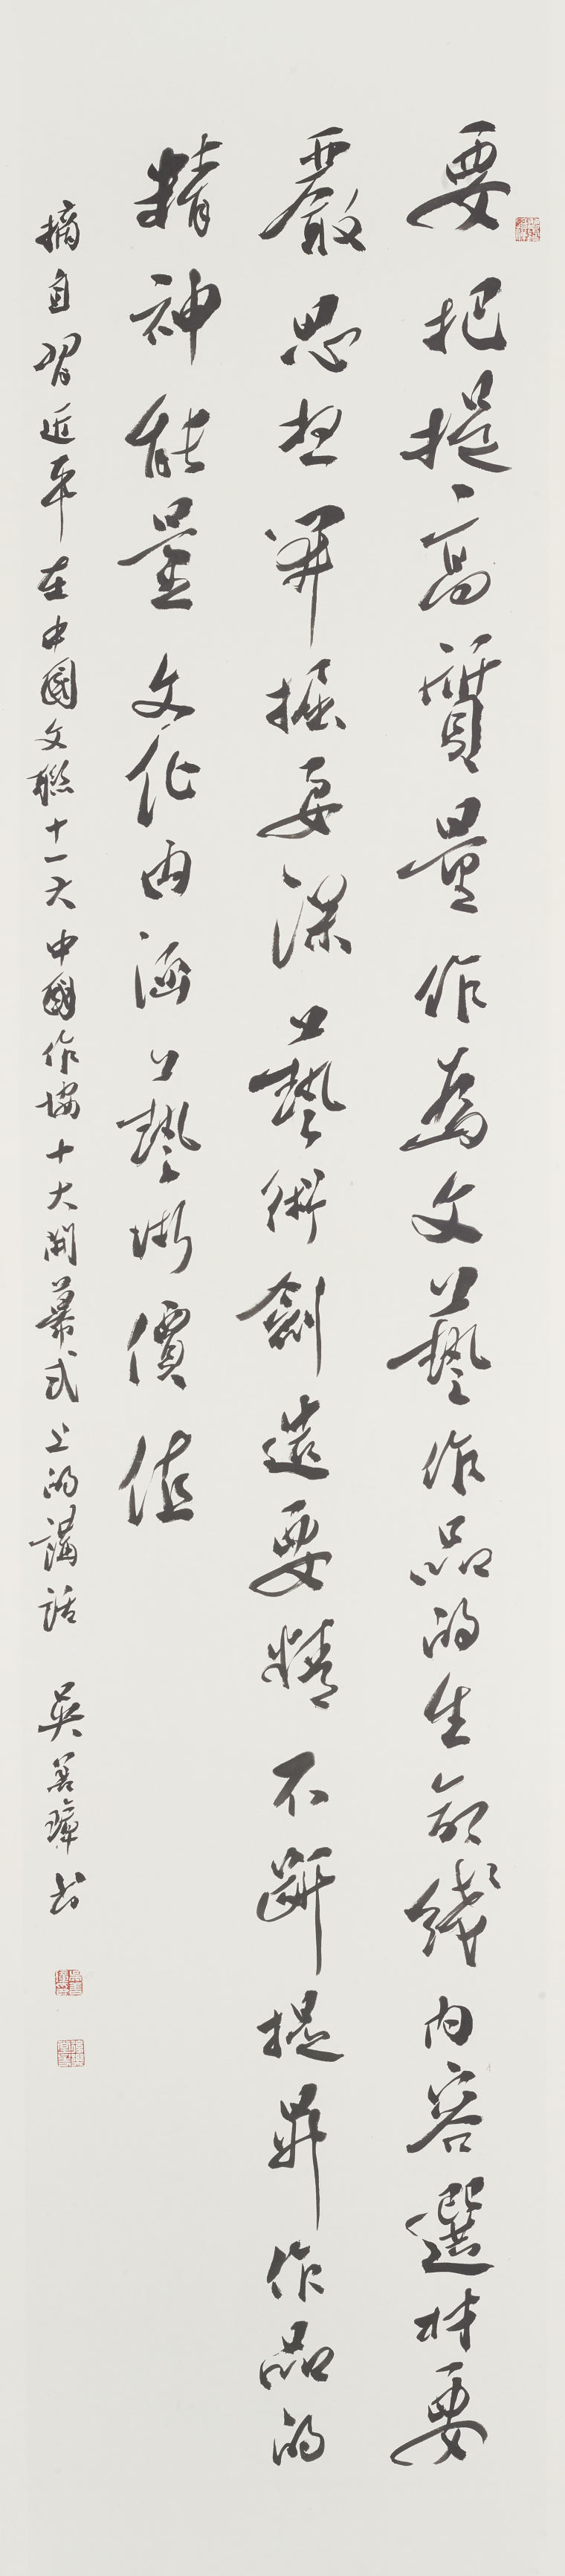 要把提高質量作為文藝作品的生命綫內容選材要
嚴思想開掘要深藝術創造要精不斷提昇作品的
精神能量文化內涵藝術價值
摘自習近平在中國文聯十一大中國作協十大開幕式上的講話 吳善璋書